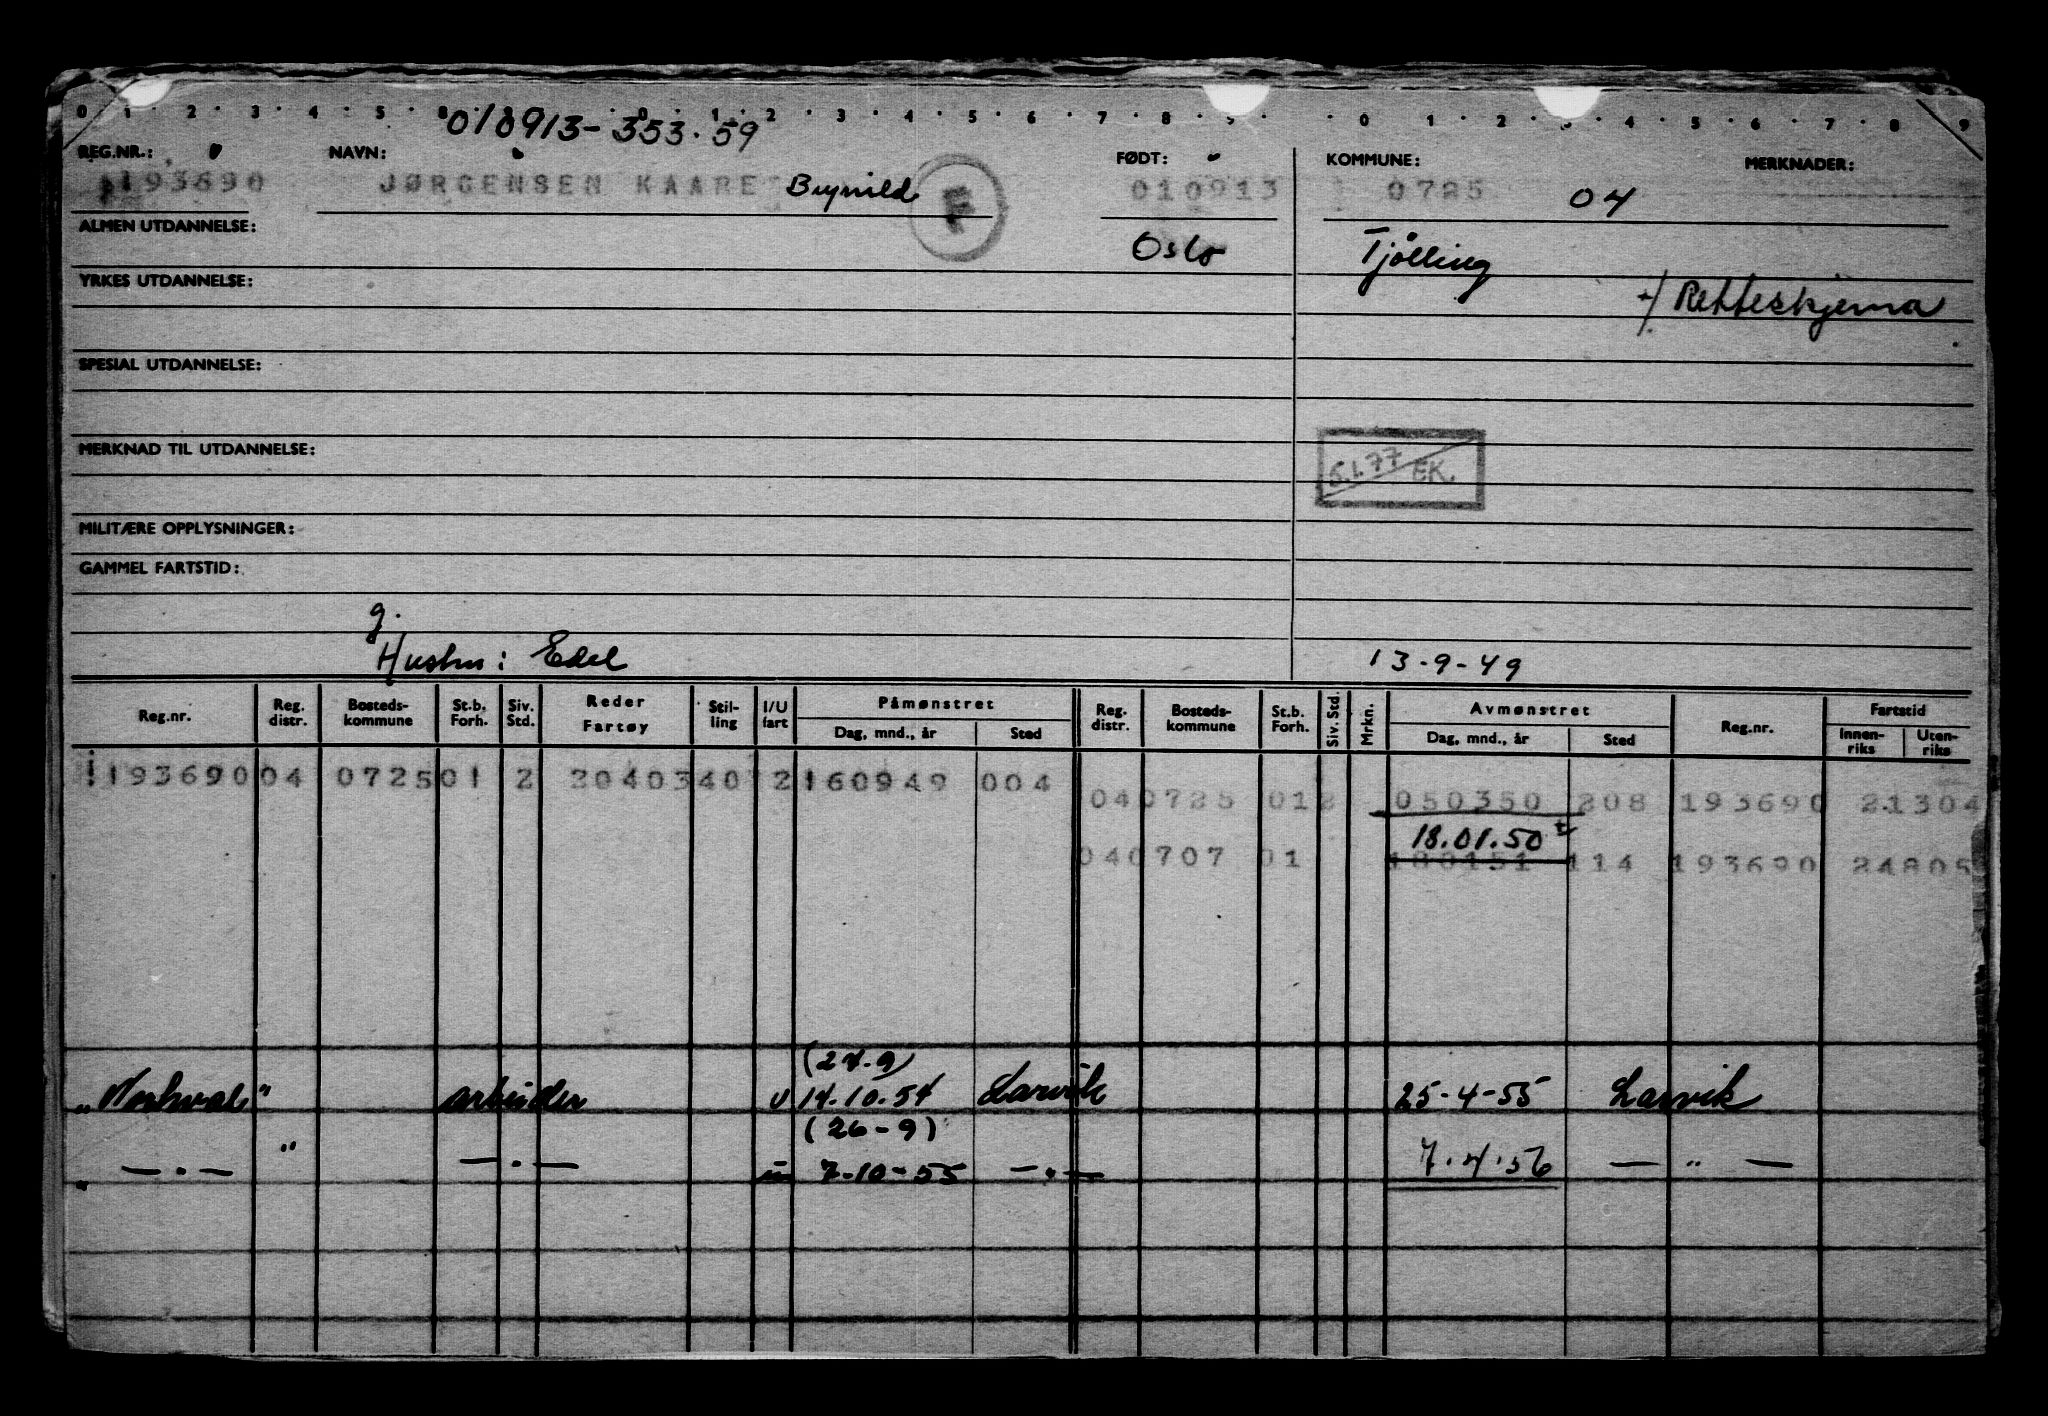 0 1 2 3 4 5 8 0 1 2 3 4 5 6 7 8 9 0 1 2 3 4 5 6 7 8 9
010913-353.59
REG.NR.: NAVN: FØDT: KOMMUNE: MERKNADER:
193690 JØRGENSEN KAARE Brynild F 010913 0725 04
ALMEN UTDANNELSE: Oslo Tjølling
YRKES UTDANNELSE: Retteskjema
SPESIAL UTDANNELSE:
MERKNAD TIL UTDANNELSE: 5.1.77 EK.
MILITÆRE OPPLYSNINGER:
GAMMEL FARTSTID:
g.
Hustru: Edel 13-9-49
Reg.nr. Reg. distr. Bosteds- kommune St.b. Forh. Siv. Std. Reder Fartøy Stil- ling I/U fart Påmønstret Dag, mnd., år Sted Reg. distr. Bosteds- kommune St.b. Forh. Siv. Std. Mrkn. Avmønstret Dag, mnd., år Sted Reg.nr. Fartstid Innen- riks Uten- riks
193690 04 0725 01 2 20403 40 2 160949 004
04 0725 01 2 050350 208 193690 21304
18.01.50
04 0707 01 180151 114 193690 24805
(27.9)
"Norhval" arbeider u 14.10.54 Larvik 25-4-55 Larvik
(26-9)
— . — " — . — u 7-10-55 — . — 7.4.56 — " —